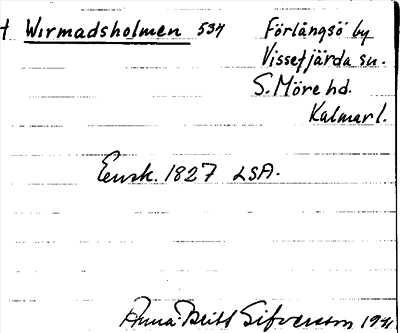 † Wirmadsholmen 534 Förlångsö by
Vissefjärda sn.
S. Möre hd.
Kalmar l.
Ensk. 1827 LSA.
Anna-Britt Sifversson 1941